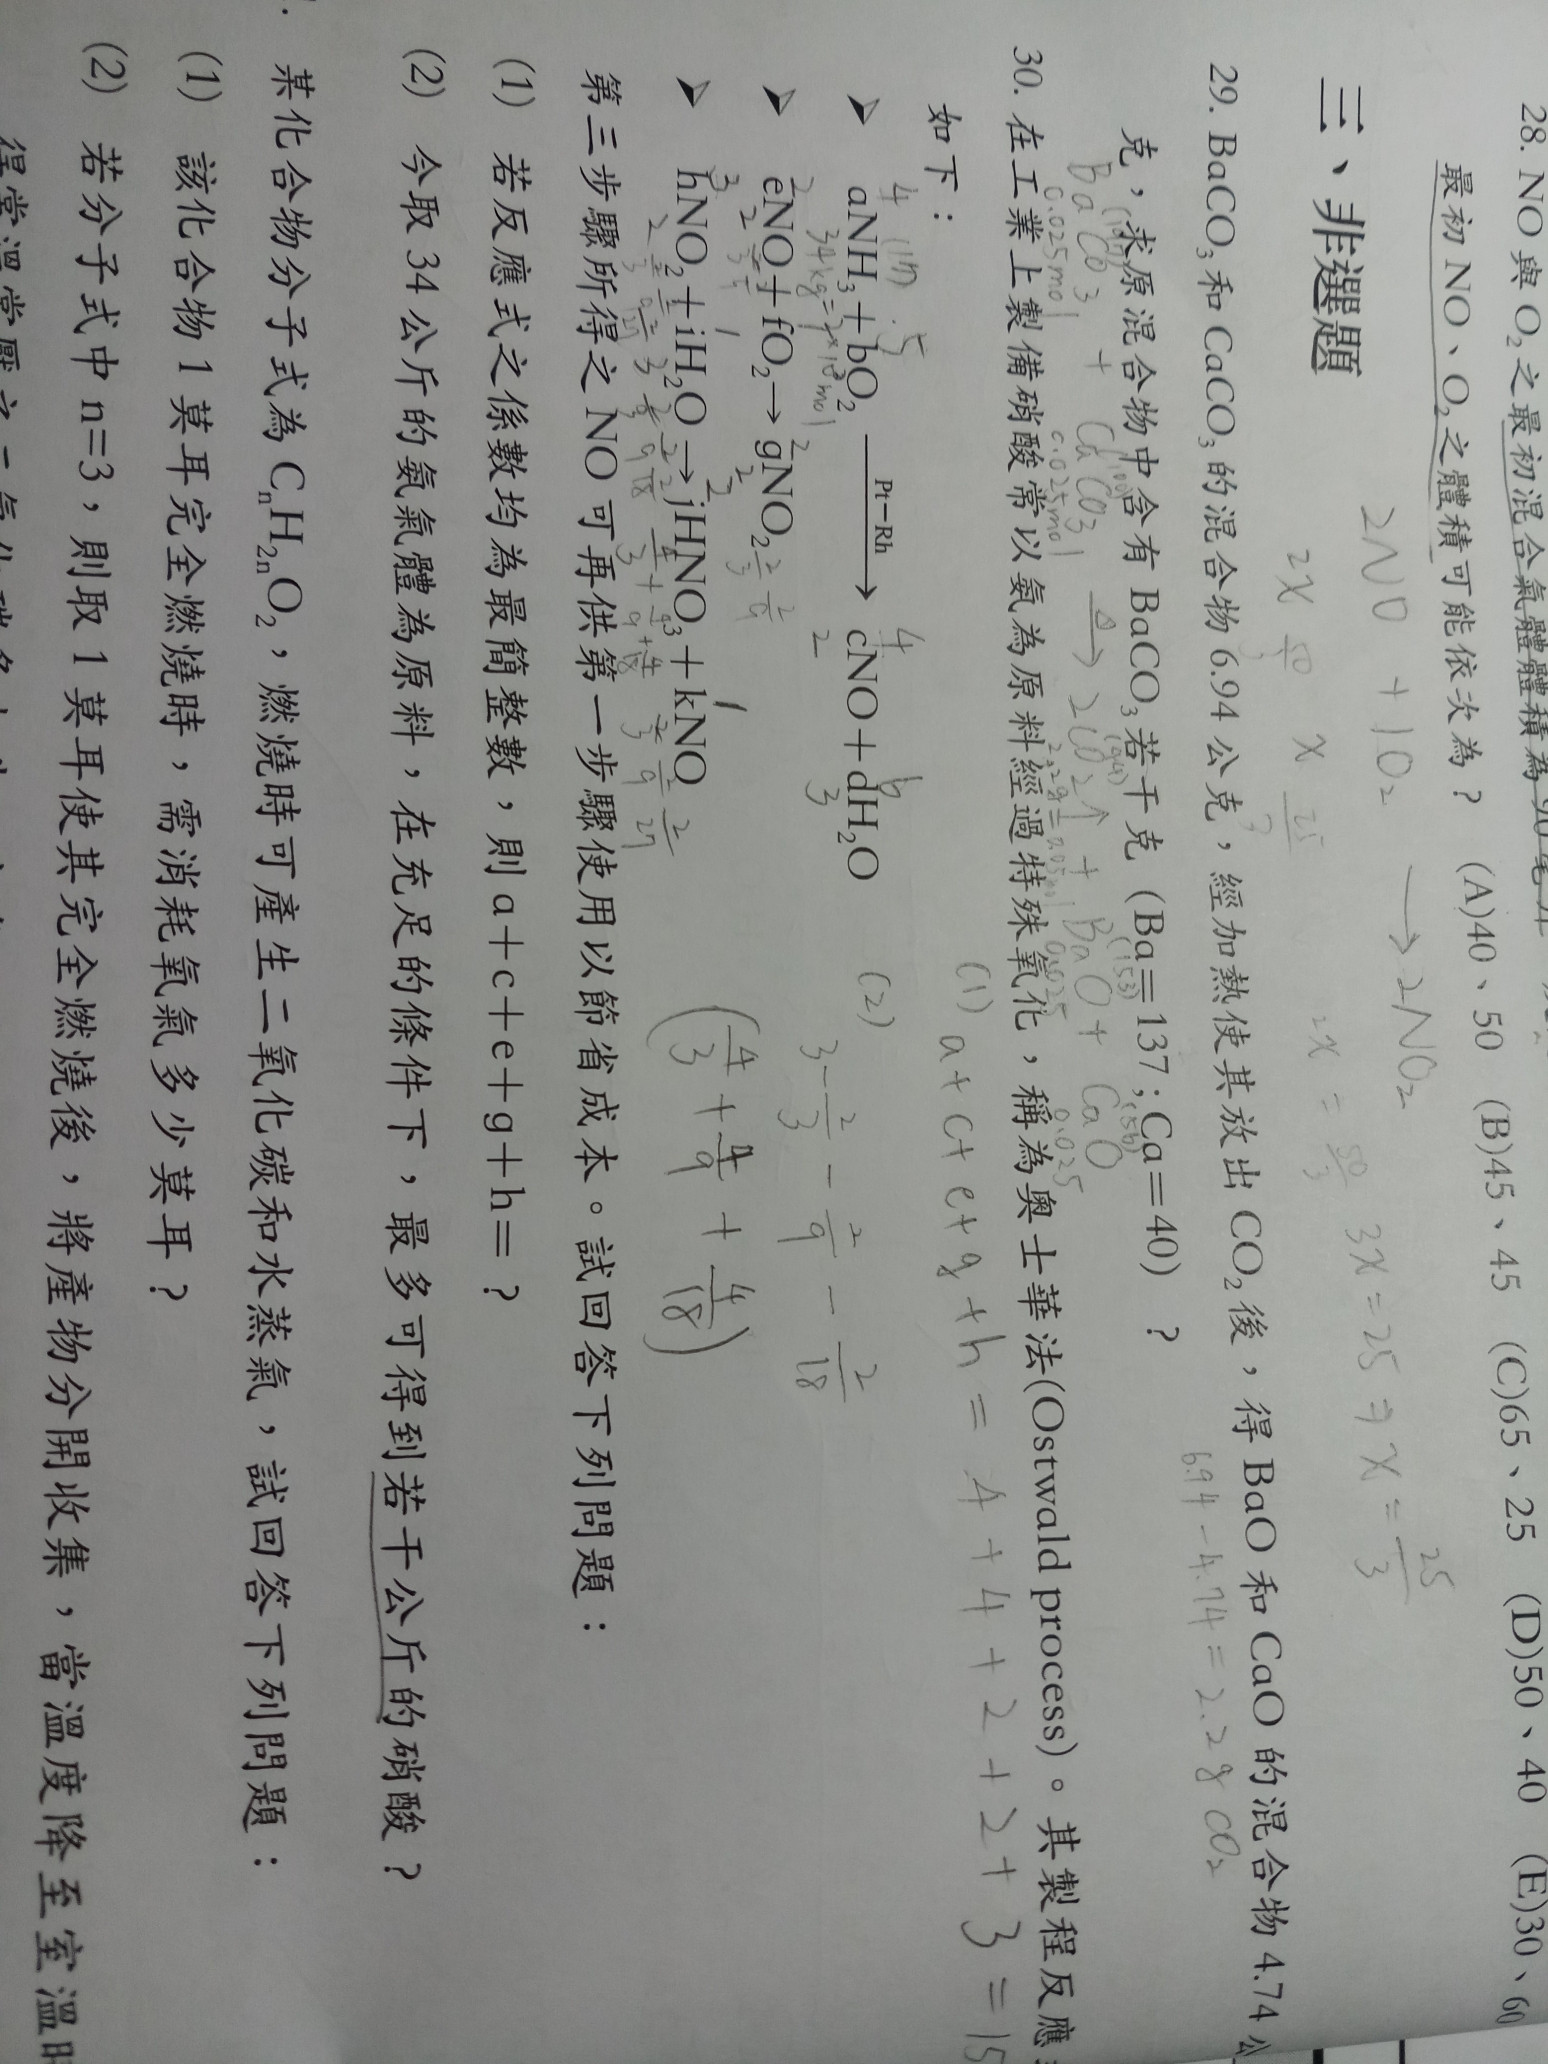 28. NO 與 O₂ 之最初混合氣體體積為 90 毫升
最初 NO、O₂ 之體積可能依次為? (A)40、50 (B)45、45 (C)65、25 (D)50、40 (E)30、60
2NO + 1O₂ → 2NO₂
2x x 2x = 50/3 3x = 25 ⇒ x = 25/3
三、非選題
29. BaCO₃ 和 CaCO₃ 的混合物 6.94 公克,經加熱使其放出 CO₂ 後,得 BaO 和 CaO 的混合物 4.74 公
克,求原混合物中含有 BaCO₃ 若干克 (Ba=137;Ca=40) ?
6.94 - 4.74 = 2.2g CO₂
BaCO3 + CaCO3 △→ 2CO2↑ + BaO + CaO
0.025mol 0.025mol 0.025 0.025
30. 在工業上製備硝酸常以氨為原料經過特殊氧化,稱為奧士華法(Ostwald process)。其製程反應
如下:
(1) a+c+e+g+h = 4+4+2+2+3 = 15
4 5 4 6
➤ aNH₃+bO₂ Pt−Rh→ cNO+dH₂O
(2)
34kg=2×10³mol 2 3
2 1 2
➤ eNO+fO₂→gNO₂
3 1 2 1
➤ hNO₂+iH₂O→jHNO₃+kNO
(4/3 + 4/9 + 4/18)
第三步驟所得之 NO 可再供第一步驟使用以節省成本。試回答下列問題:
(1) 若反應式之係數均為最簡整數,則 a+c+e+g+h=?
(2) 今取 34 公斤的氨氣體為原料,在充足的條件下,最多可得到若干公斤的硝酸?
某化合物分子式為 CₙH₂ₙO₂,燃燒時可產生二氧化碳和水蒸氣,試回答下列問題:
(1) 該化合物 1 莫耳完全燃燒時,需消耗氧氣多少莫耳?
(2) 若分子式中 n=3,則取 1 莫耳使其完全燃燒後,將產物分開收集,當溫度降至室溫時